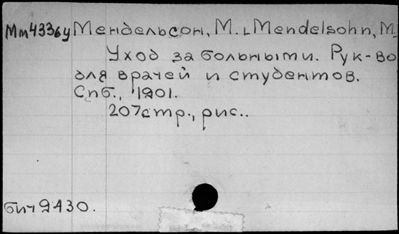 Мм4336у Мендельсон, М. ⌊Mendelsohn, M.
Уход за больными. Рук-во
для врачей и студентов.
Спб., 1901.
207стр., рис..
бит9430.